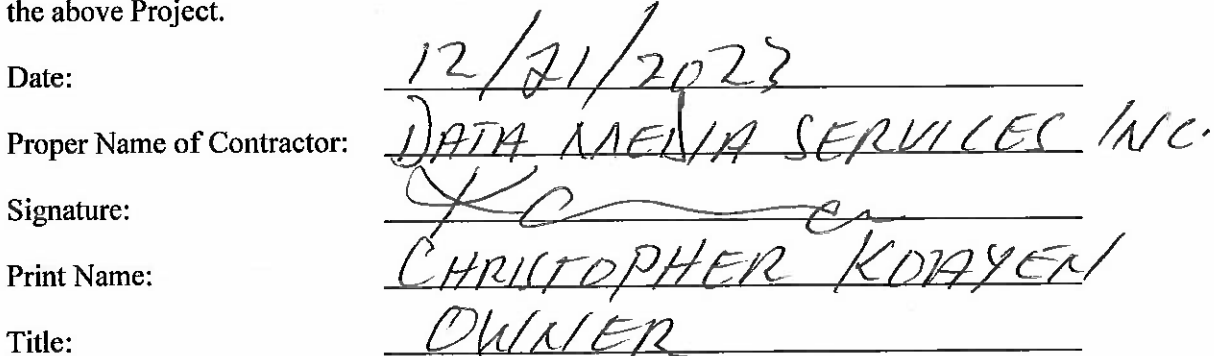 the above Project.
Date: 12/21/2023
Proper Name of Contractor: DATA MEDIA SERVICES INC.
Signature:
Print Name: CHRISTOPHER
Title: OWNER